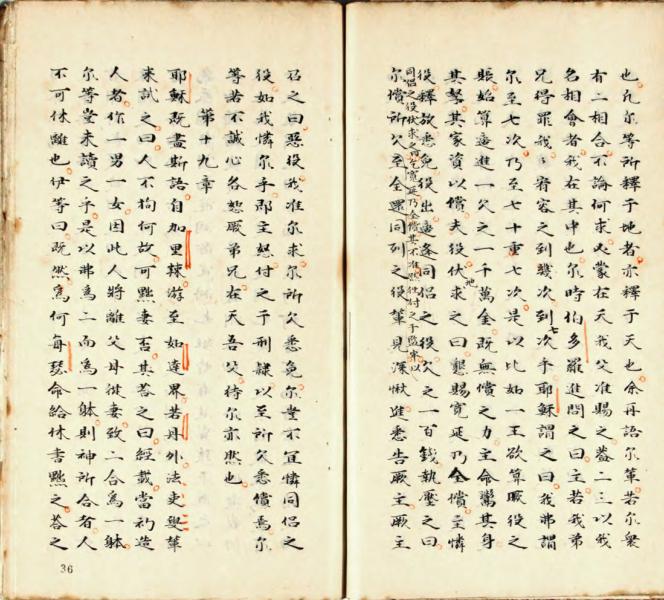 也凡尔等所釋于地者亦釋于天也余再語尔輩若尔衆
有二相合不論何求必蒙在天我父准賜之蓋二三以我
名相會者我在其中也尔時伯多羅進問之曰主若我弟
兄得罪我我宥容之到幾次到七次乎耶穌謂之曰我弗謂
尔至七次乃至七十重七次是以比如一王欲算厥役之
賬始算適進一欠之一千萬金既無償之力主命鬻其身
其孥其家資以償夫役伏地求之曰懇賜寬延乃全償主憐
役釋放悉免役出適逢同侶之役欠之一百錢執壓之曰
同侶之役伏求之曰乞寬延乃全償其不准然付之于監牢以
尔償所欠至全還同列之役輩見深愀進悉告厥主厥主
召之曰惡役我准尔求尔所欠悉免尔豈不宜憐同侶之
役如我憐尔乎即主怒付之于刑隸以至所欠悉償焉尔
等若不誠心各恕厥弟兄在天吾父待尔亦然也
第十九章
耶穌既畫斯語自加里辣游至如達界若丹外法吏叟輩
來試之曰人不拘何故可黜妻否其荅之曰經載當初造
人者作一男一女因此人將離父母從妻致二合為一躰
尔等豈未讀之乎是以弗為二而為一躰則神所合者人
不可休離也伊等曰既然為何每瑟命給休書黜之荅之
36